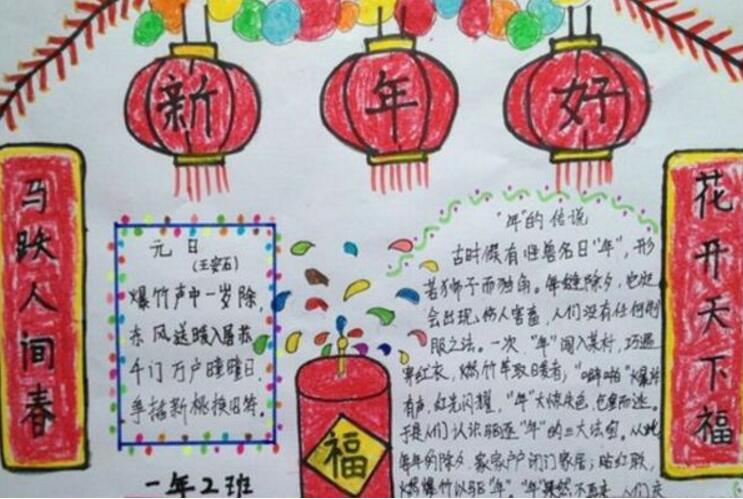 新年好
马跃人间春
元日
(王安石)
爆竹声中一岁除,
东风送暖入屠苏
千门万户曈曈日,
一年2班
福
"年"的传说
古时候有怪兽名曰"年",形
若狮子而独角。每逢除夕,
会出现,伤人害畜,人们没有任何制
服之法。一次,"年"闯入某村,巧遇
穿红衣,燃竹草取暖者;"噼啪"爆炸
有声,红光闪耀,"年"大惊失色,
于是人们认识驱逐"年"的三大法宝。从此
每年的除夕,家家户户闭门家居;贴红联,
花开天下福